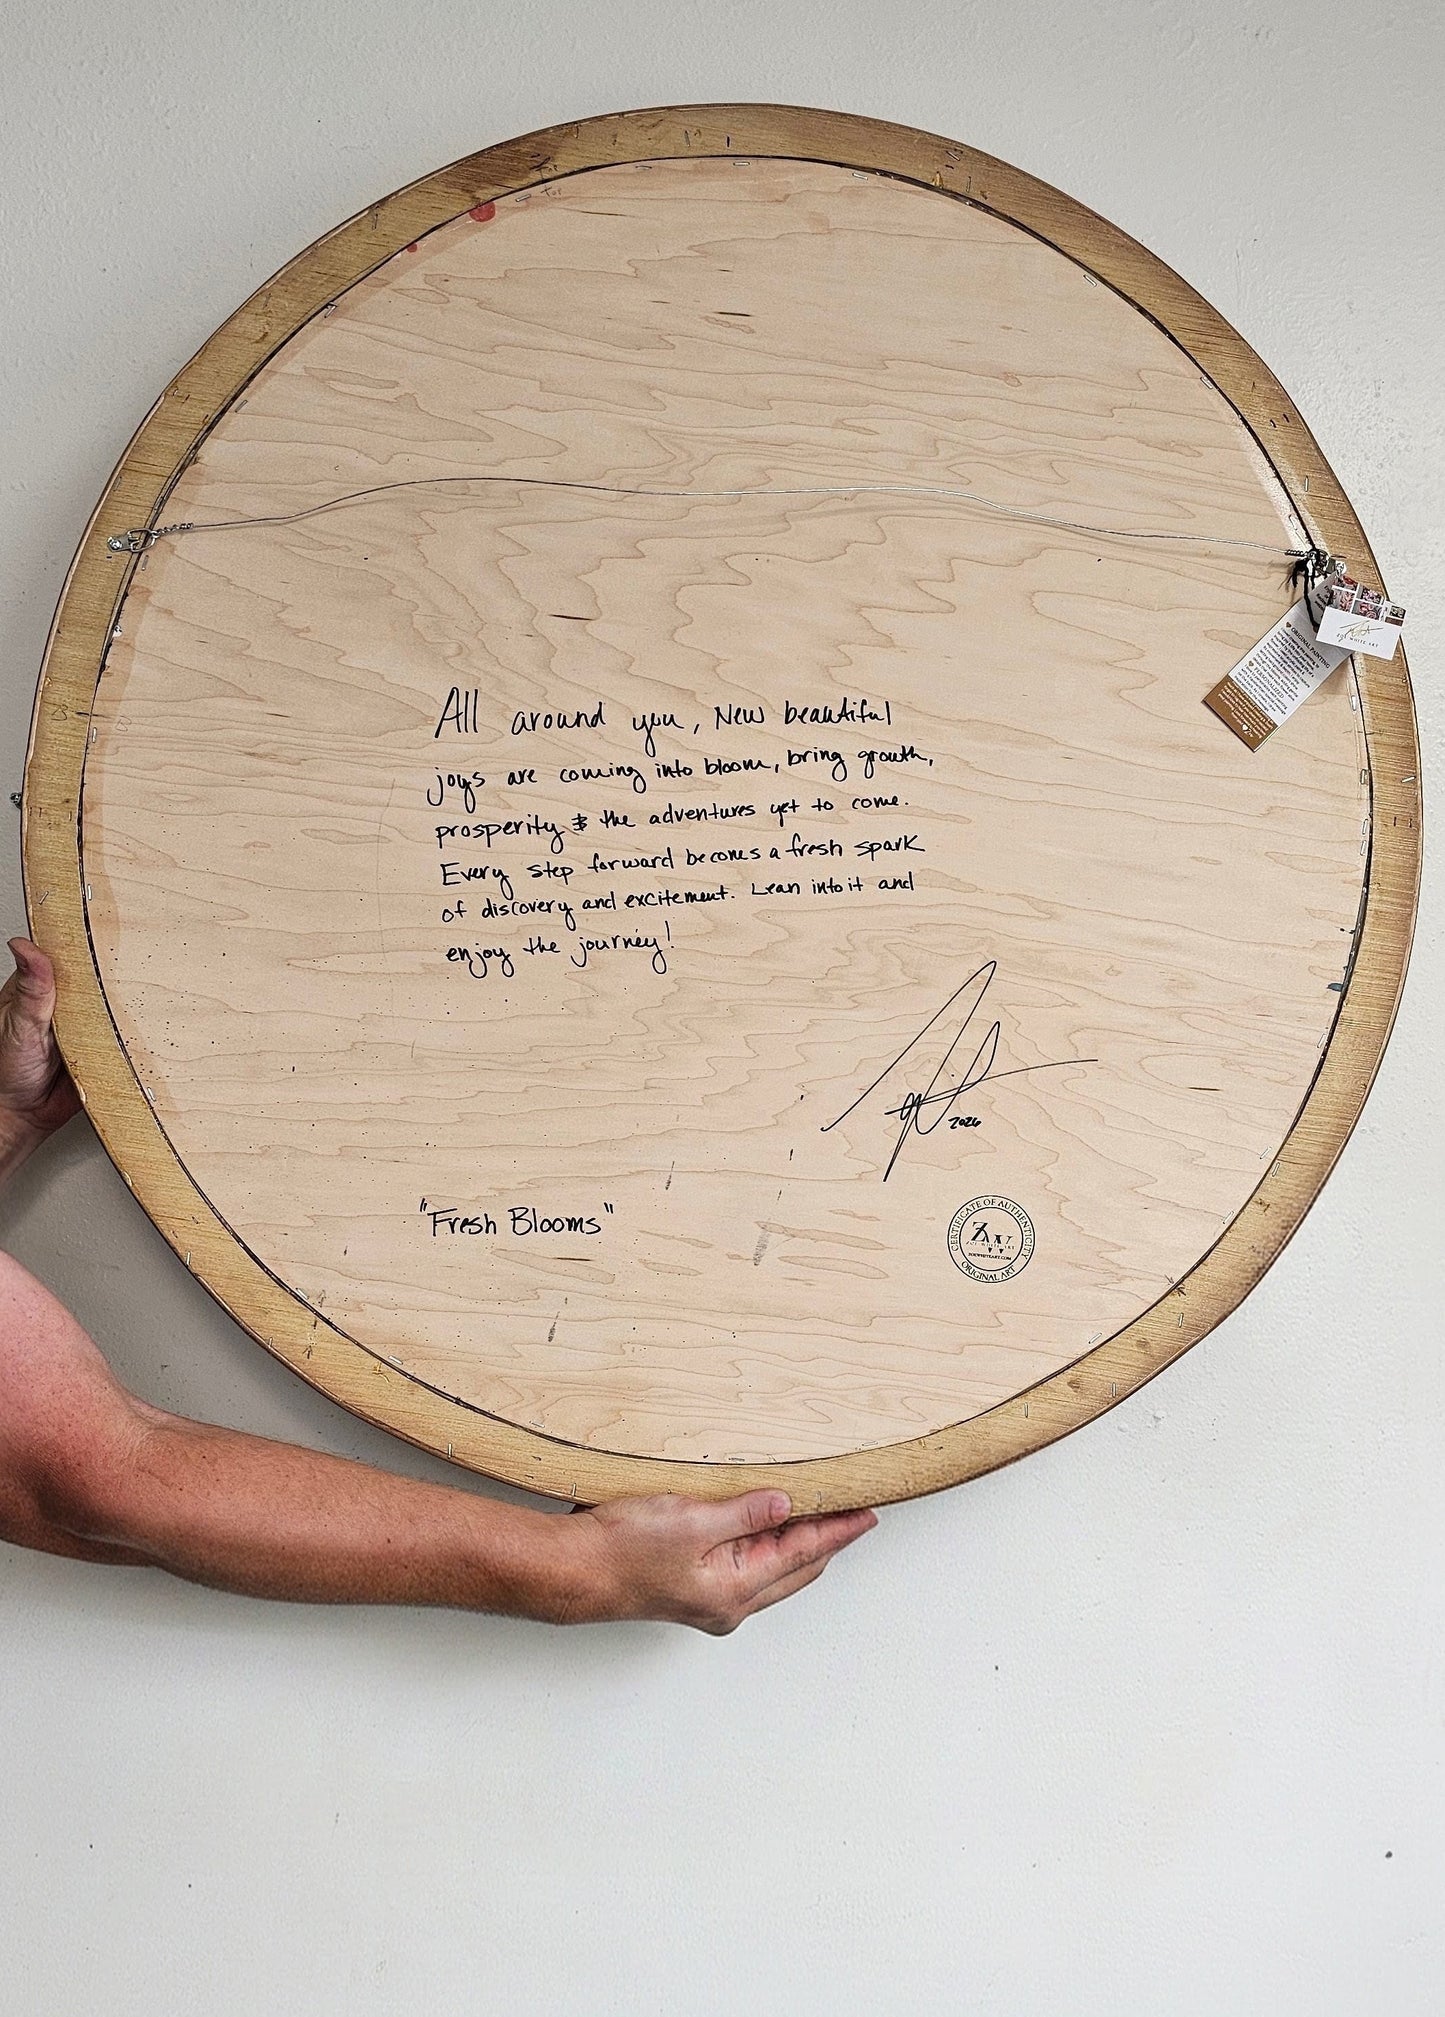 All around you, New beautiful
joys are coming into bloom, bring growth,
prosperity & the adventures yet to come.
Every step forward becomes a fresh spark
of discovery and excitement. Lean into it and
enjoy the journey!
2026
"Fresh Blooms"
CERTIFICATE OF AUTHENTICITY
ZW
ZOE WHITE ART
ZOEWHITEART.COM
ORIGINAL ART
ORIGINAL PAINTING
PERSONALIZED
ZOE WHITE ART
TOP
TOP